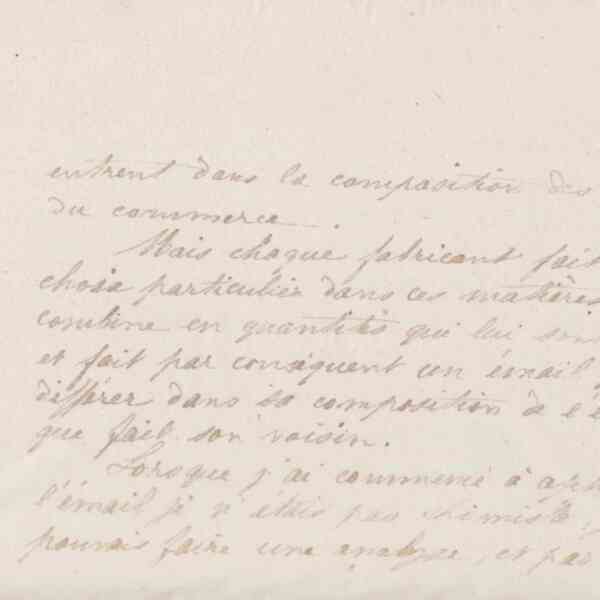 entrent dans la composition des
du commerce.
Mais chaque fabricant fait
choix particulier dans ces matières
combine en quantités qui lui sont
et fait par conséquent un émail
différer dans sa composition de l'é
que fait son voisin.
Lorsque j'ai commencé à app
l'émail je n'étais pas chimiste
pouvais faire une analyse, et par